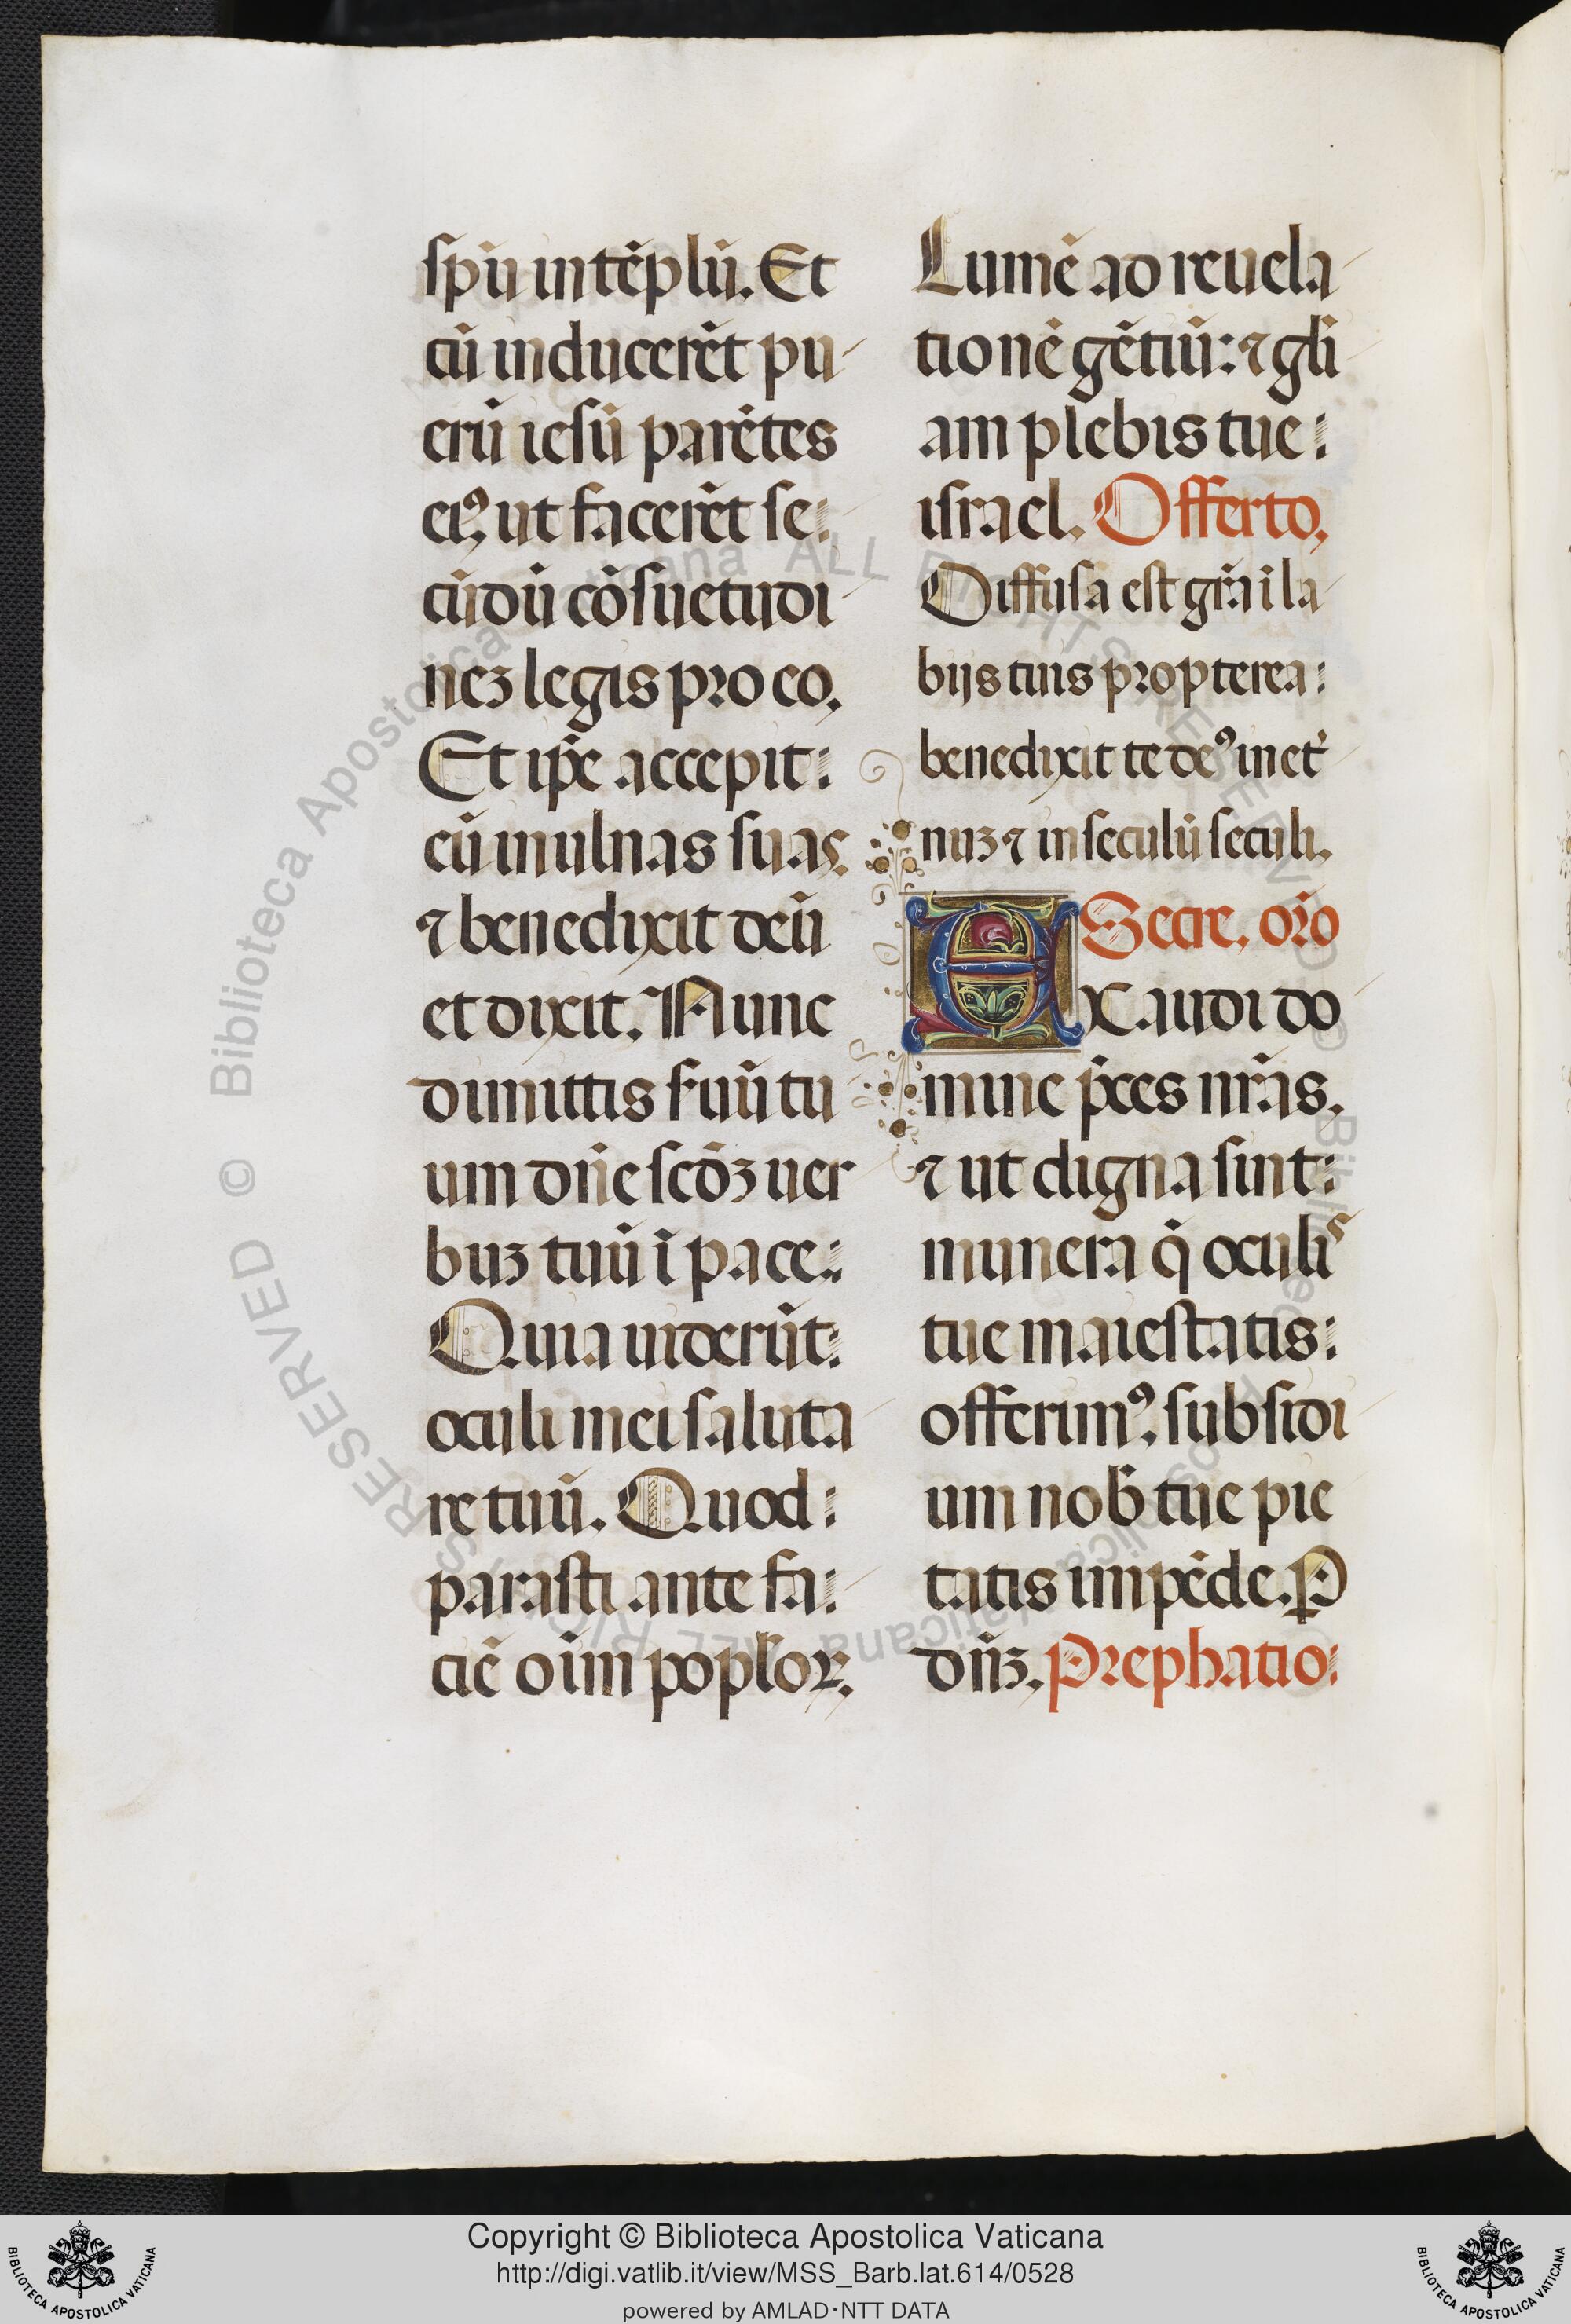 spū in tēplū. Et
cū inducerēt pu
erū iesū parētes
eiꝰ, ut facerēt se
cūdū cōsuetudi
neꝫ legis pro eo.
Et ip̄e accepit
eū in ulnas suas.
⁊ benedixit deū
et dixit. Nunc
dimittis s̓uū tu
um dn̄e scd̄ꝫ uer
buꝫ tuū ī pace.
Quia uiderūt
oculi mei saluta
re tuū. Quod
parasti ante fa
ciē oīm popl̓oꝝ.
Lumē ad reuela
tionē gētiū: ⁊ gl̓i
am plebis tue
israel. Offerto.
Diffusa est gr̄a ī la
bijs tuis propterea
benedixit te deꝰ in et̓
nuꝫ ⁊ in seculū seculi.
Secre. or̄o
EXaudi do
mine p̄ces nr̄as.
⁊ ut digna sint
munera q̄ oculis
tue maiestatis
offerimꝰ. subsidi
um nob̓ tue pie
tatis impēde. P
dn̄ꝫ. Prephatio
Copyright © Biblioteca Apostolica Vaticana
http://digi.vatlib.it/view/MSS_Barb.lat.614/0528
powered by AMLAD·NTT DATA
BIBLIOTECA APOSTOLICA VATICANA
BIBLIOTECA APOSTOLICA VATICANA